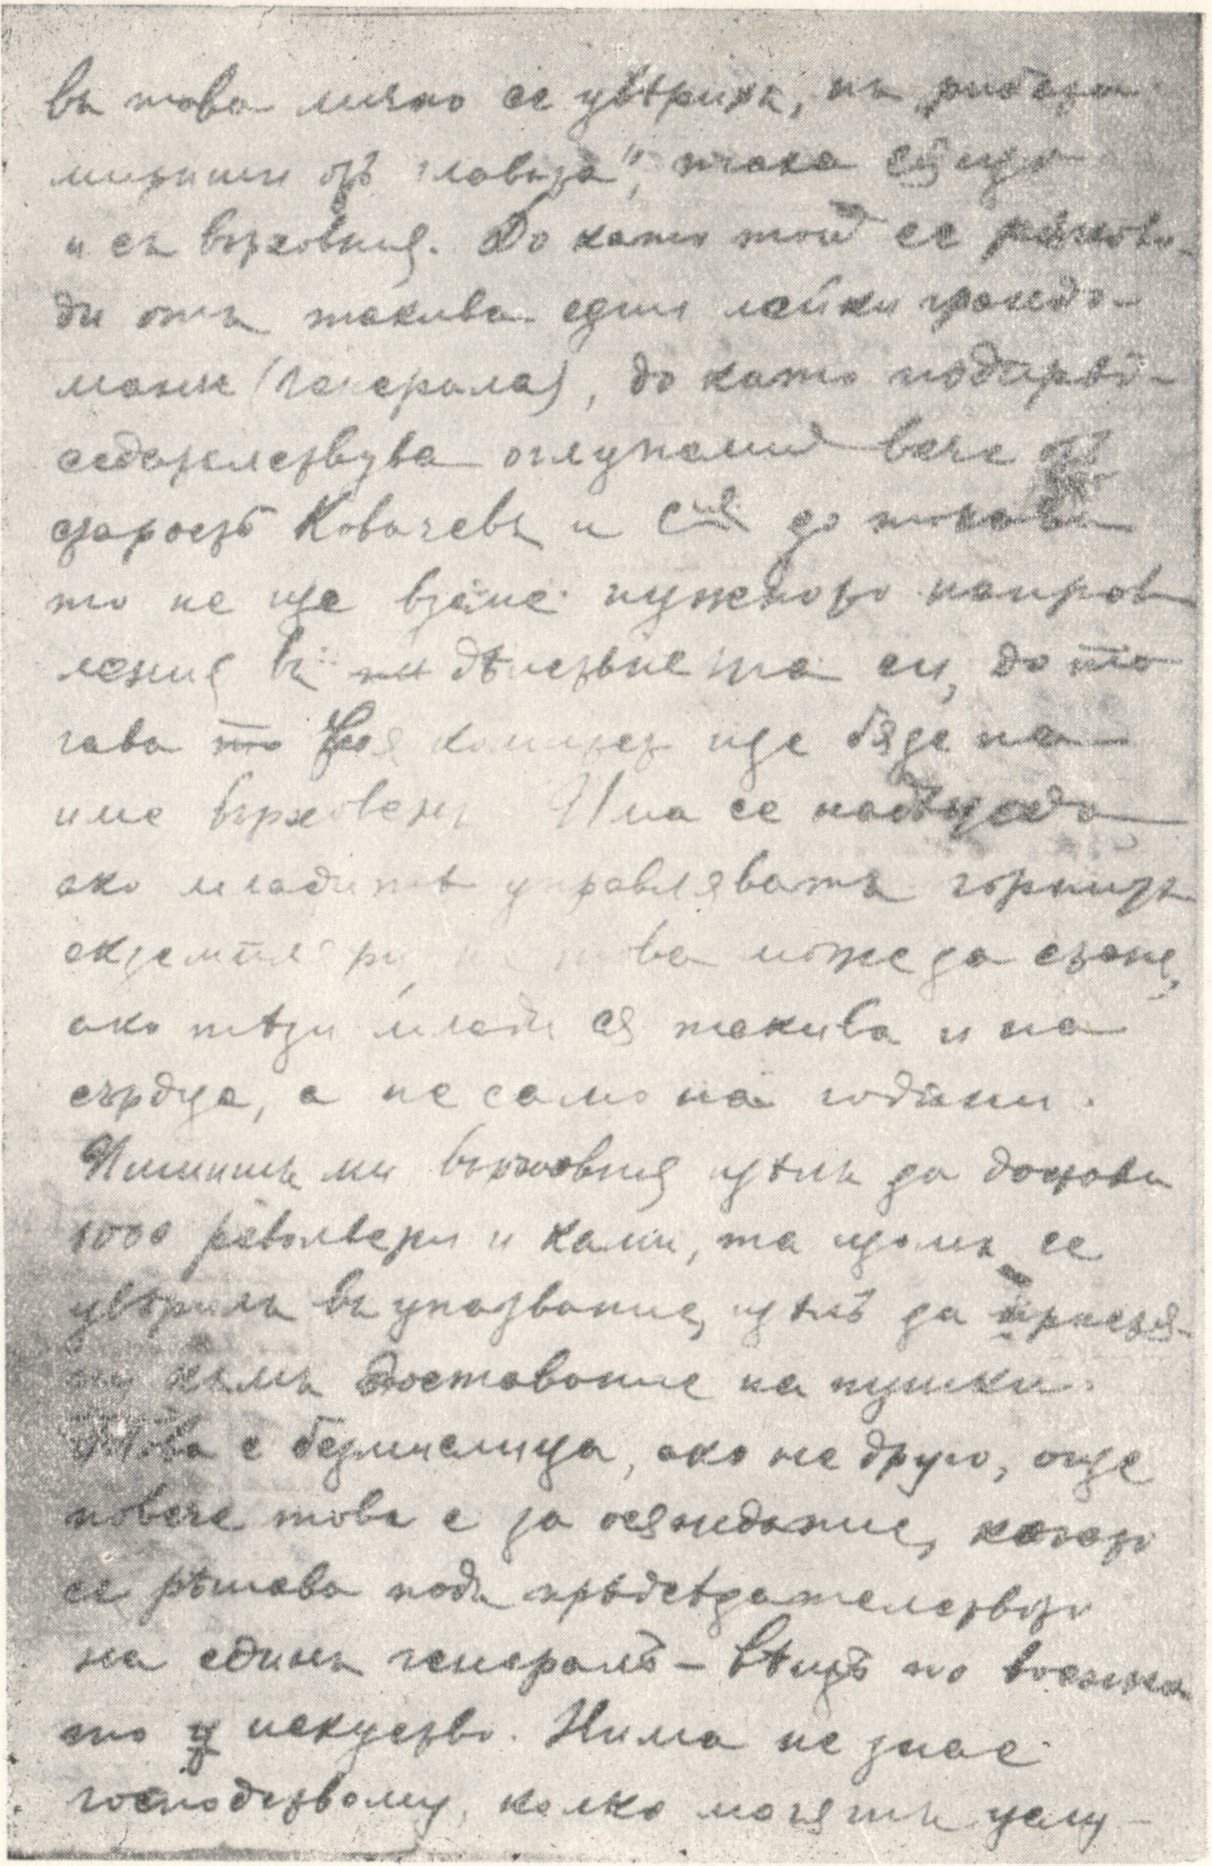 въ това лично се увѣрихъ, нъ „рибата
мирише отъ главата“, така също
и съ върховния. До като той се рѫково-
ди отъ такива едни лейки грандо-
мани (генерала), до като подпрѣд-
седателствува оглупелия вече отъ
старость Ковачевъ и сие до тогава
то не ще вземе нужното направ
ление въ дѣлствието си, до то
гава то тоя комитет ще бѫде на
име върховенъ Има се надѣжда
ако младитѣ управляватъ горнитѣ
екземпляри, но това може да стане,
ако тѣзи млади сѫ такива и на
сърдца, а не само на години.
Пишишъ ми върховния щѣлъ да достави
1000 револвери и ками, та щомъ се
увѣрилъ въ упазвание, щѣлъ да пристѫ-
пи къмъ доставяние на пушки.
Това е безмислица, ако не друго, още
повече това е за осѫждание, когато
се рѣшава подъ прѣдсѣдателството
на единъ генералъ – вѣщъ по военно
то искуство. Нима не знае
господството му, колко могѫтъ услу-